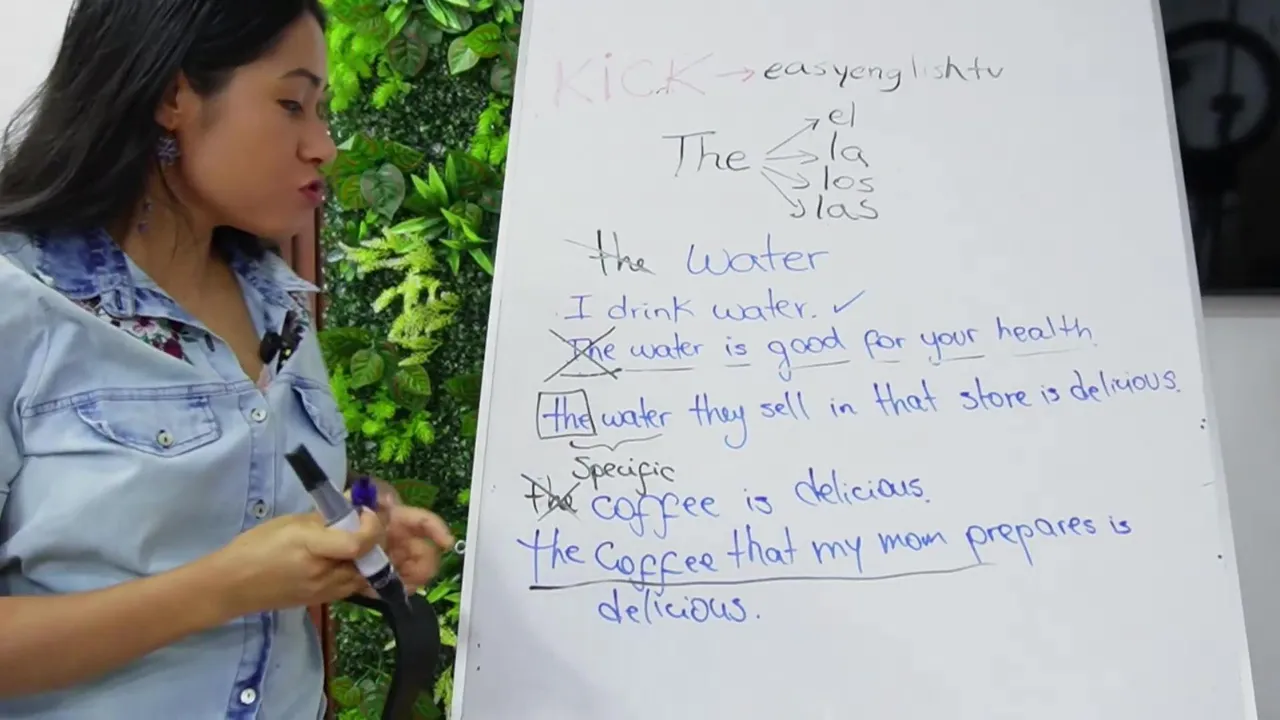 KiCK → easyenglishtv
The
el
la
los
las
the water
I drink water. ✓
The water is good for your health.
the water they sell in that store is delicious.
Specific
the coffee is delicious.
the Coffee that my mom prepares is
delicious.